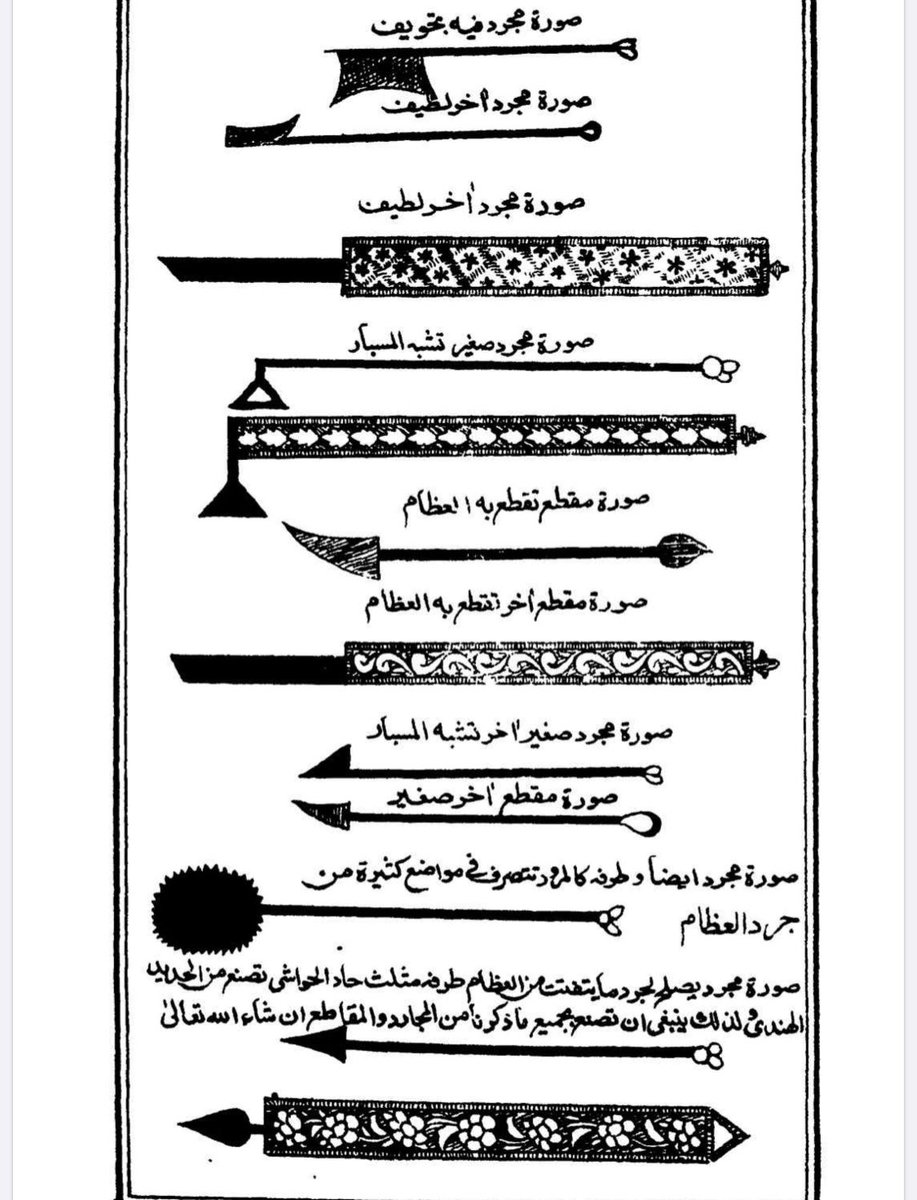 صورة مجرد فيه تجويف
صورة مجرد اٰخر لطيف
صورة مجرد اٰخر لطيف
صورة مجرد صغير تشبه المسبار
صورة مقطع تقطع به العظام
صورة مقطع اٰخر تقطع به العظام
صورة مجرد صغير اٰخر تشبه المسبار
صورة مقطع اٰخر صغير
صورة مجرد ايضاً وطرفه كالمرود تتصرف فى مواضع كثيرة من
جرد العظام
صورة مجرد يصلح لجرد ما يتفتت من العظام طرفه مثلث حاد الحواشى تصنع من الحديد
الهندى ولذلك ينبغى ان تصنع جميع ما ذكرنا من المجارد والمقاطع ان شاء الله تعالىٰ